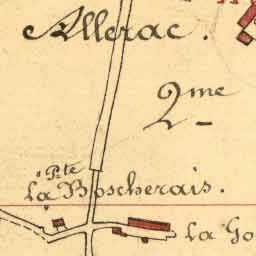 Allerac.
2me
Pte
La Boscherais.
La Go